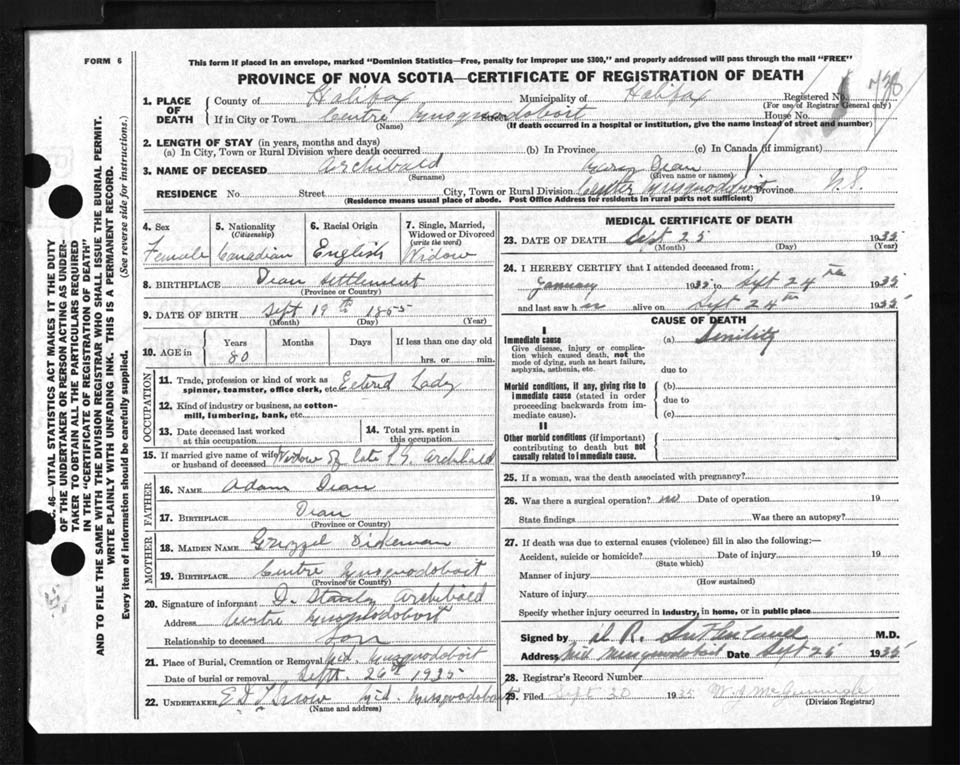 FORM 6
This form if placed in an envelope, marked "Dominion Statistics—Free, penalty for improper use $300," and properly addressed will pass through the mail "FREE"
PROVINCE OF NOVA SCOTIA—CERTIFICATE OF REGISTRATION OF DEATH
1. PLACE OF DEATH
County of Halifax Municipality of Halifax Registered No.
(For use of Registrar General only)
If in City or Town Centre Musquodoboit House No.
(Name) (If death occurred in a hospital or institution, give the name instead of street and number)
2. LENGTH OF STAY (in years, months and days)
(a) In City, Town or Rural Division where death occurred (b) In Province (c) In Canada (if immigrant)
3. NAME OF DECEASED Archibald Dean
(Surname) (Given name or names)
RESIDENCE No. Street City, Town or Rural Division Center Musquodoboit Province N.S.
(Residence means usual place of abode. Post Office Address for residents in rural parts not sufficient)
4. Sex Female
5. Nationality (Citizenship) Canadian
6. Racial Origin English
7. Single, Married, Widowed or Divorced (write the word) Widow
8. BIRTHPLACE Dean Settlement
(Province or Country)
9. DATE OF BIRTH Sept 19th 1855
(Month) (Day) (Year)
10. AGE in Years Months Days If less than one day old
80 hrs. or min.
OCCUPATION
11. Trade, profession or kind of work as spinner, teamster, office clerk, etc. Lady
12. Kind of industry or business, as cotton-mill, lumbering, bank, etc.
13. Date deceased last worked at this occupation
14. Total yrs. spent in this occupation
15. If married give name of wife or husband of deceased Widow of late Archibald
FATHER
16. NAME Adam Dean
17. BIRTHPLACE Dean
(Province or Country)
MOTHER
18. MAIDEN NAME Grizzel Dickman
19. BIRTHPLACE Centre Musquodoboit
(Province or Country)
20. Signature of informant D. Stanley Archibald
Address Centre Musquodoboit
Relationship to deceased Son
21. Place of Burial, Cremation or Removal Mid. Musquodoboit
Date of burial or removal Sept. 26th 1935
22. UNDERTAKER Mid. Musquodoboit
(Name and address)
MEDICAL CERTIFICATE OF DEATH
23. DATE OF DEATH Sept 25 1935
(Month) (Day) (Year)
24. I HEREBY CERTIFY that I attended deceased from:
January 1935 to Sept 24th 1935
and last saw h er alive on Sept 24th 1935
CAUSE OF DEATH
I
Immediate cause
Give disease, injury or complication which caused death, not the mode of dying, such as heart failure, asphyxia, asthenia, etc.
(a) Senility
due to
Morbid conditions, if any, giving rise to immediate cause (stated in order proceeding backwards from immediate cause).
(b)
due to
(c)
II
Other morbid conditions (if important) contributing to death but not causally related to immediate cause.
25. If a woman, was the death associated with pregnancy?
26. Was there a surgical operation? no Date of operation 19
State findings Was there an autopsy?
27. If death was due to external causes (violence) fill in also the following:—
Accident, suicide or homicide? Date of injury 19
(State which)
Manner of injury
(How sustained)
Nature of injury
Specify whether injury occurred in industry, in home, or in public place
Signed by R. Sutherland M.D.
Address Mid Musquodoboit Date Sept 25 1935
28. Registrar's Record Number
29. Filed Sept 30 1935 W. J.
(Division Registrar)
46—VITAL STATISTICS ACT MAKES IT THE DUTY
OF THE UNDERTAKER OR PERSON ACTING AS UNDER-
TAKER TO OBTAIN ALL THE PARTICULARS REQUIRED
IN THE "CERTIFICATE OF REGISTRATION OF DEATH"
AND TO FILE THE SAME WITH THE DIVISION REGISTRAR WHO SHALL ISSUE THE BURIAL PERMIT.
WRITE PLAINLY WITH UNFADING INK. THIS IS A PERMANENT RECORD.
Every item of information should be carefully supplied. (See reverse side for instructions.)